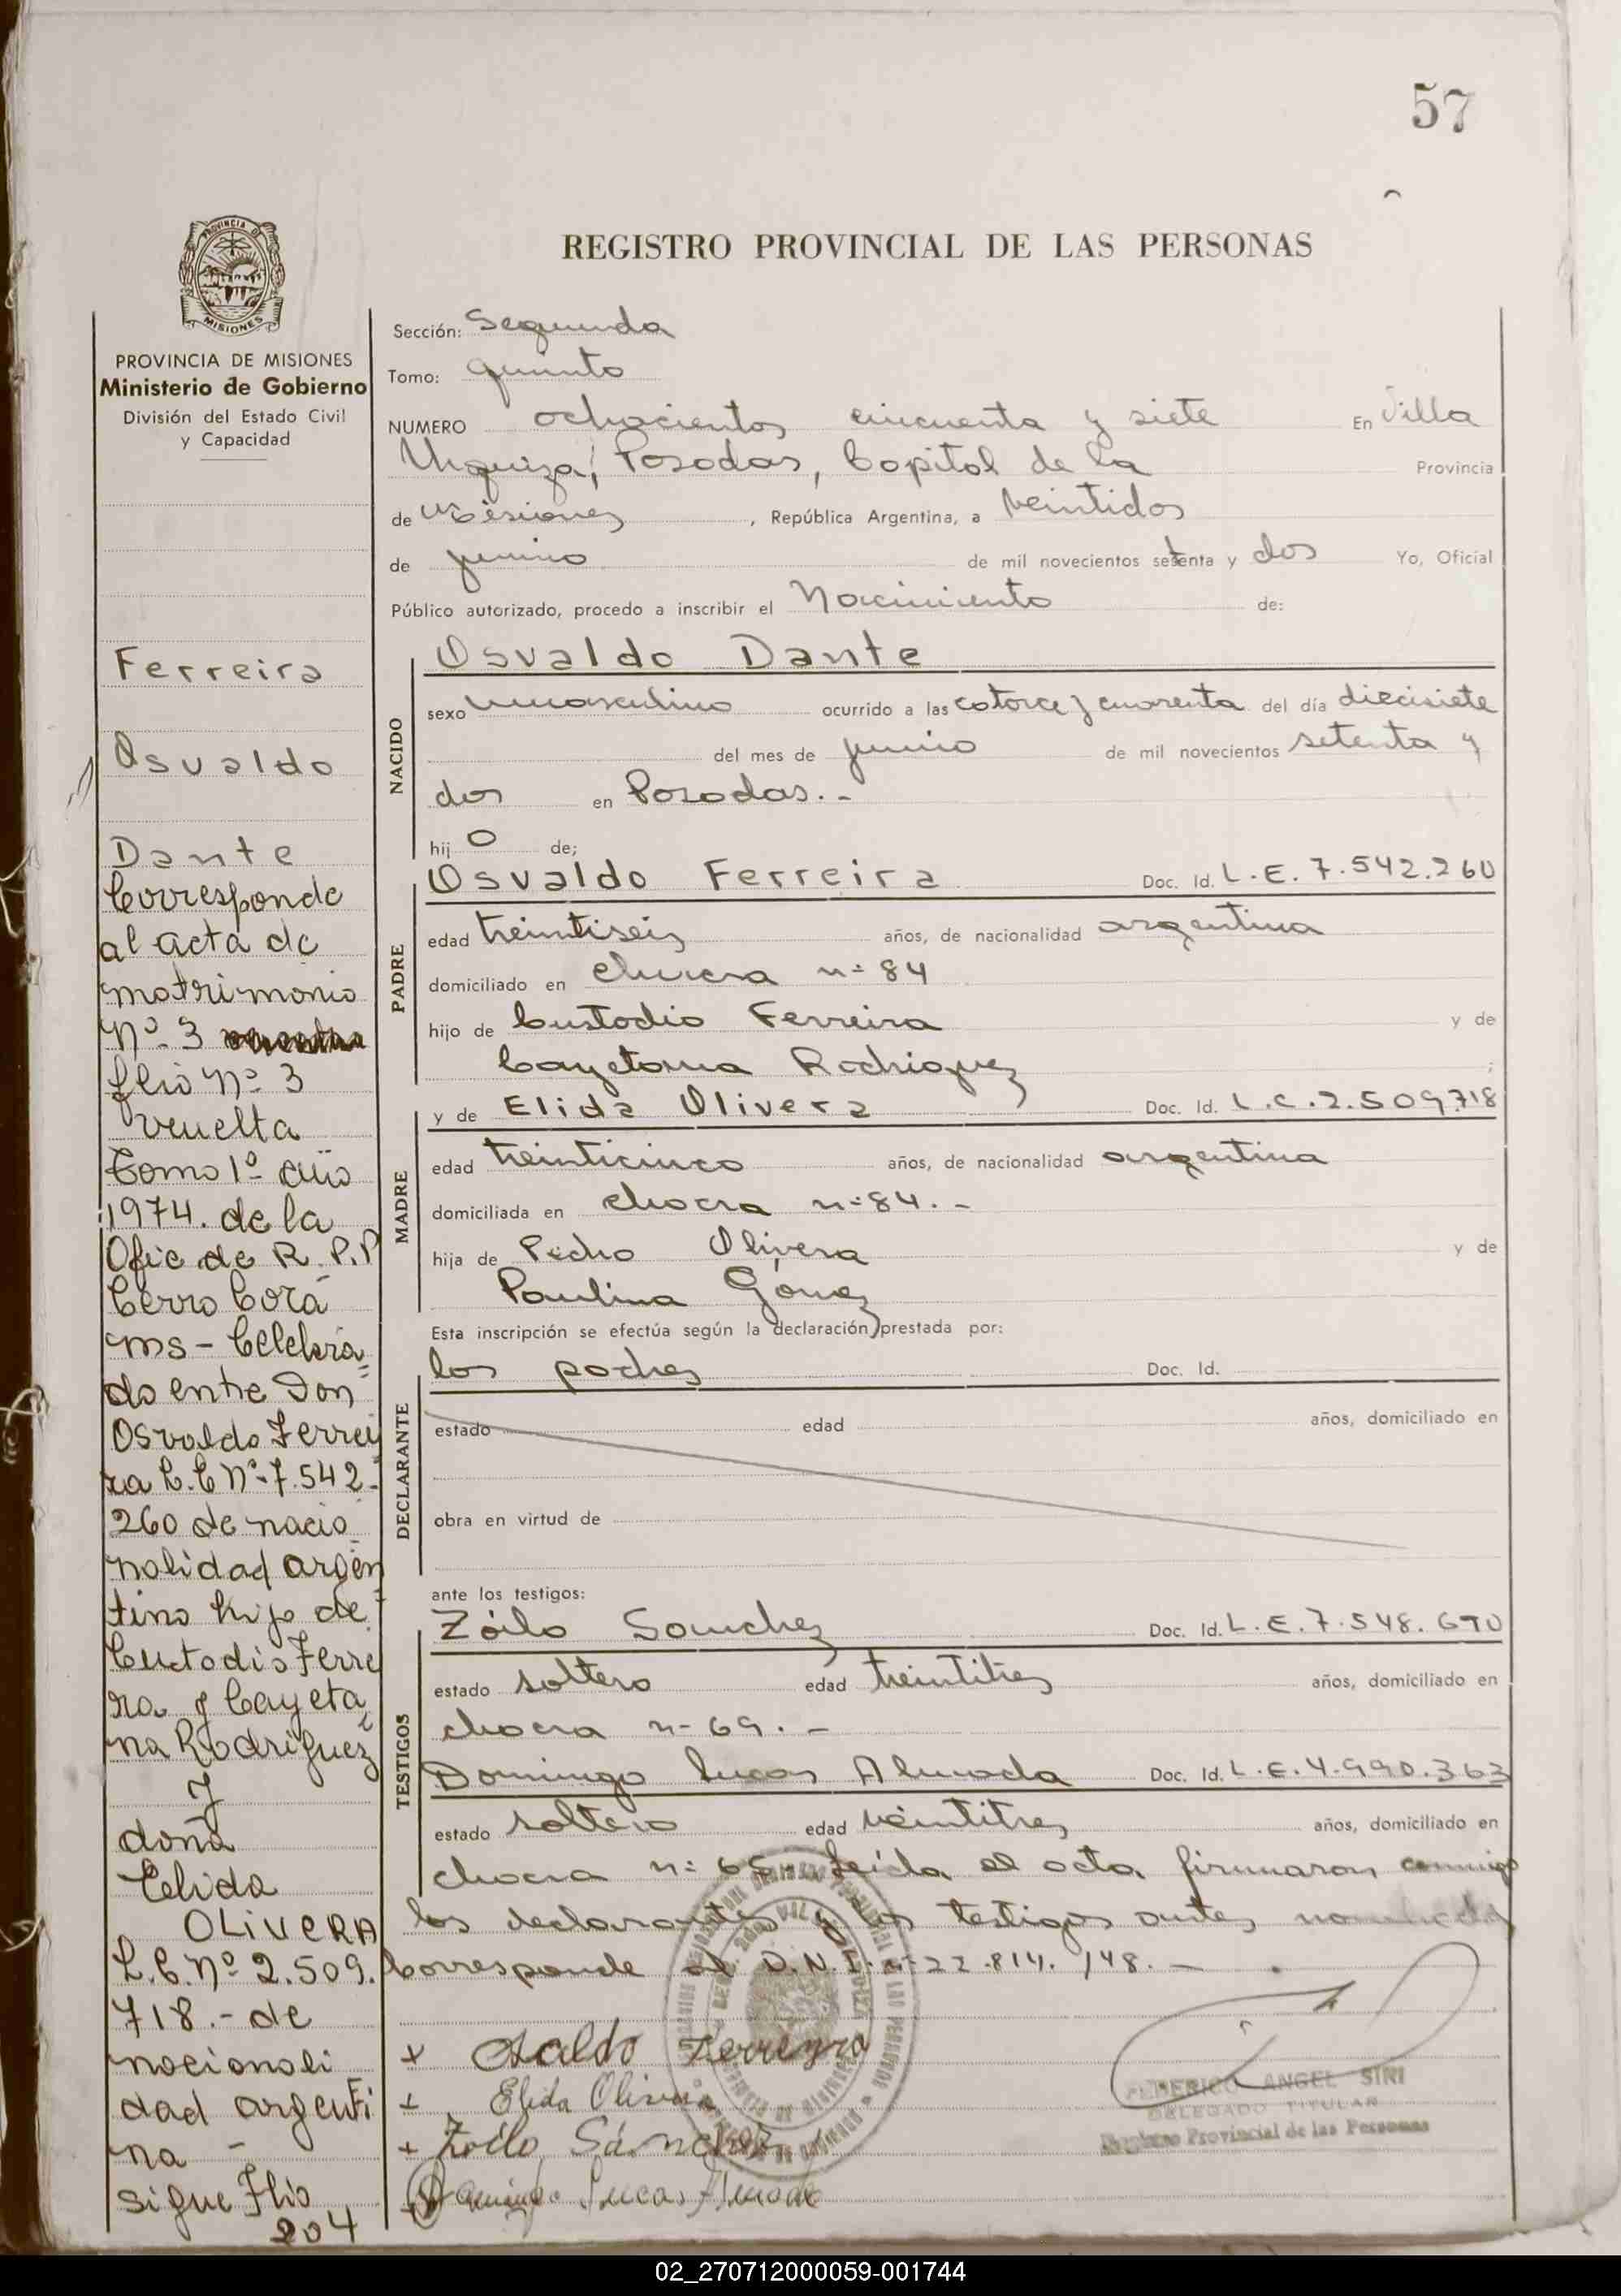 57
PROVINCIA DE
MISIONES
REGISTRO PROVINCIAL DE LAS PERSONAS
PROVINCIA DE MISIONES
Ministerio de Gobierno
División del Estado Civil
y Capacidad
Ferreira
Osvaldo
Dante
Corresponde
al acta de
matrimonio
Nº 3
flio Nº 3
vuelta
Tomo 1º año
1974. de la
Ofic de R. P.P
Cerro Corá
ms - Celebra
do entre Don
Osvaldo Ferrei
ra L.E Nº 7.542.
260 de nacio
nalidad argen
tino hijo de
Custodio Ferre
ra y Cayeta
na Rodriguez
y
doña
Elida
OLIVERA
L.C. Nº 2.509.
718.- de
nacionali
dad argenti
na -
sigue Flio
204
Sección: Segunda
Tomo: quinto
NUMERO ochocientos cincuenta y siete En Villa
Urquiza, Posadas, Capital de la Provincia
de Misiones, República Argentina, a veintidos
de junio de mil novecientos setenta y dos Yo, Oficial
Público autorizado, procedo a inscribir el Nacimiento de:
NACIDO
Osvaldo Dante
sexo masculino ocurrido a las catorce y cuarenta del día diecisiete
del mes de junio de mil novecientos setenta y
dos en Posadas.-
hijo de;
PADRE
Osvaldo Ferreira Doc. Id. L.E. 7.542.260
edad treintiseis años, de nacionalidad argentina
domiciliado en chacra nº 84
hijo de Custodio Ferreira y de
Cayetana Rodriguez ;
MADRE
y de Elida Olivera Doc. Id. L.C. 2.509.718
edad treinticinco años, de nacionalidad argentina
domiciliada en chacra nº 84.-
hija de Pedro Olivera y de
Paulina Gómez
Esta inscripción se efectúa según la declaración prestada por:
DECLARANTE
los padres Doc. Id.
estado edad años, domiciliado en
obra en virtud de
ante los testigos:
TESTIGOS
Zóilo Sanchez Doc. Id. L.E. 7.548.670
estado soltero edad treintitres años, domiciliado en
chacra nº 69.-
Domingo Lucas Almada Doc. Id. L.E. 4.990.363
estado soltero edad veintitres años, domiciliado en
chacra nº Leída el acta, firmaron conmigo
los declarantes y los testigos antes
Corresponde al D.N.I. nº 22.814.148.-
x Osaldo Ferreyra
x Elida Olivera
x Zoilo Sánchez
Domingo Lucas Almada
FEDERICO ANGEL SIRI
DELEGADO TITULAR
Registro Provincial de las Personas
02_270712000059-001744